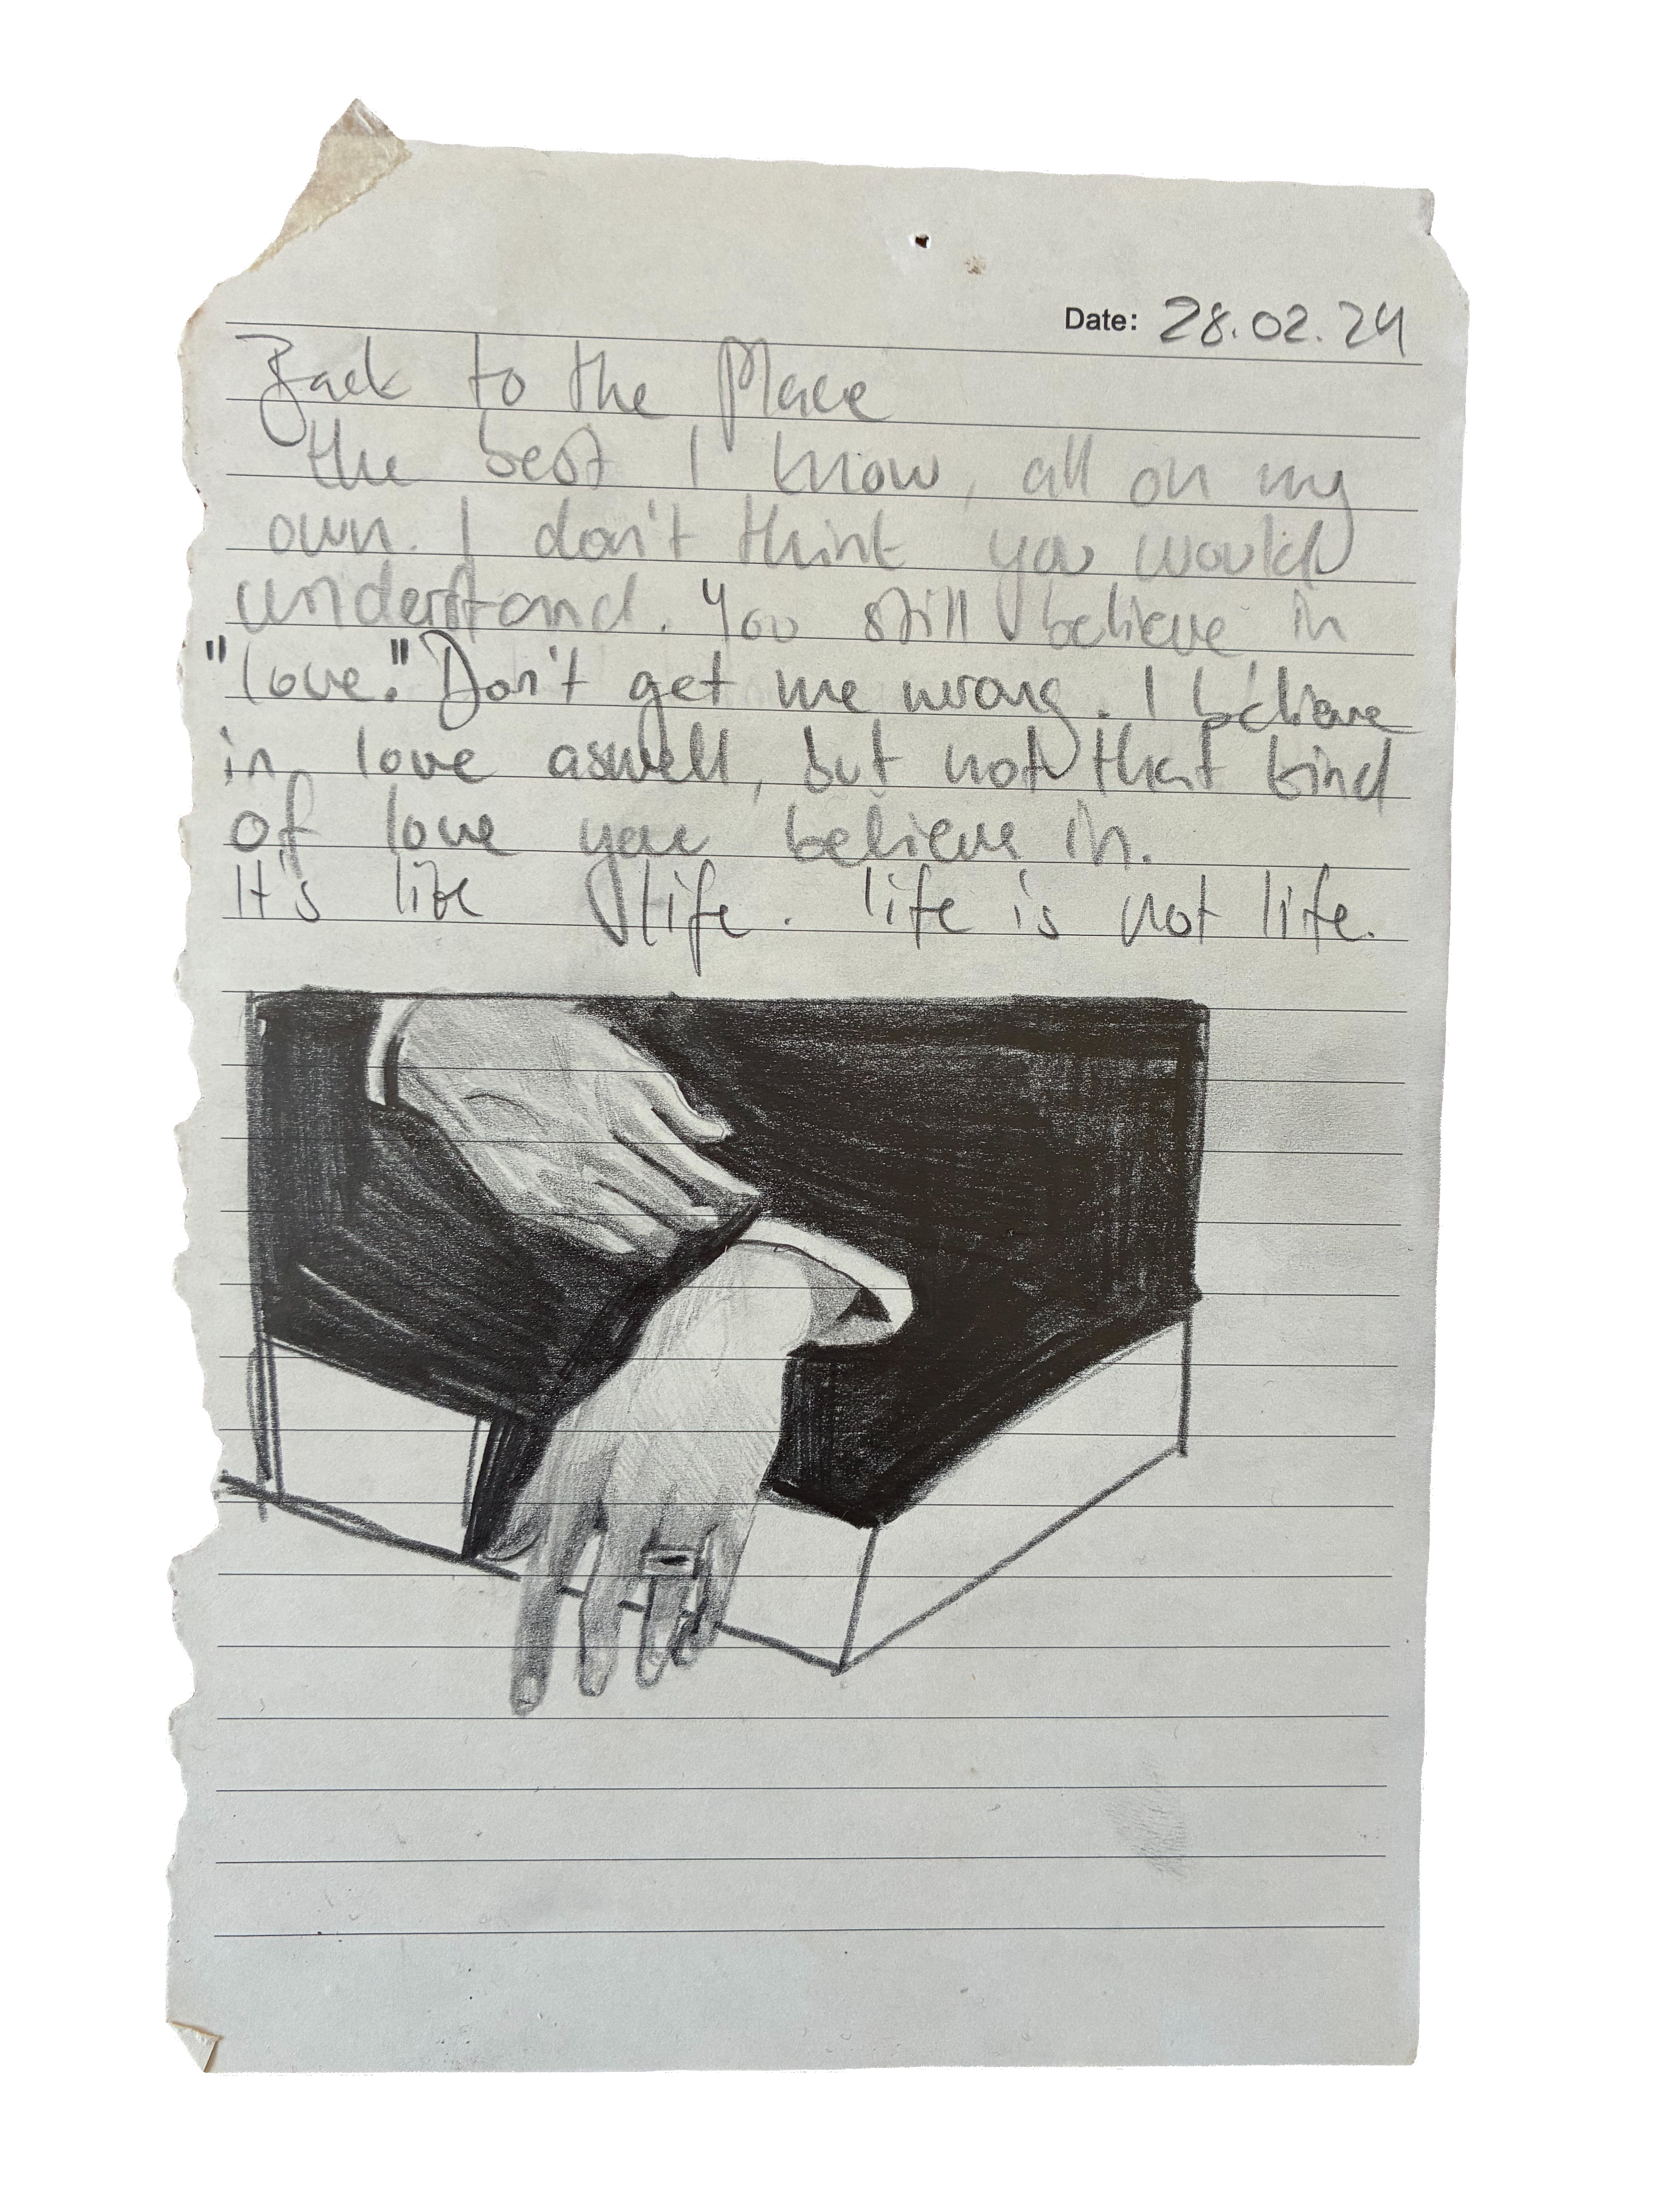 Date: 28.02.24
Back to the Place
the best I know, all on my
own. I don't think you would
understand. You still believe in
"love." Don't get me wrong. I believe
in love aswell, but not that kind
of love you believe in.
It's like life. life is not life.